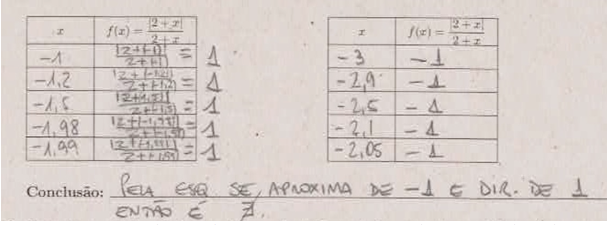 x f(x) = |2+x| / 2+x
-1 |2+(-1)| / 2+(-1) = 1
-1,2 |2+(-1,2)| / 2+(-1,2) = 1
-1,5 |2+(-1,5)| / 2+(-1,5) = 1
-1,98 |2+(-1,98)| / 2+(-1,98) = 1
-1,99 |2+(-1,99)| / 2+(-1,99) = 1
x f(x) = |2+x| / 2+x
-3 -1
-2,9 -1
-2,5 -1
-2,1 -1
-2,05 -1
Conclusão: PELA ESQ SE APROXIMA DE -1 E DIR. DE 1
ENTÃO É ∄.